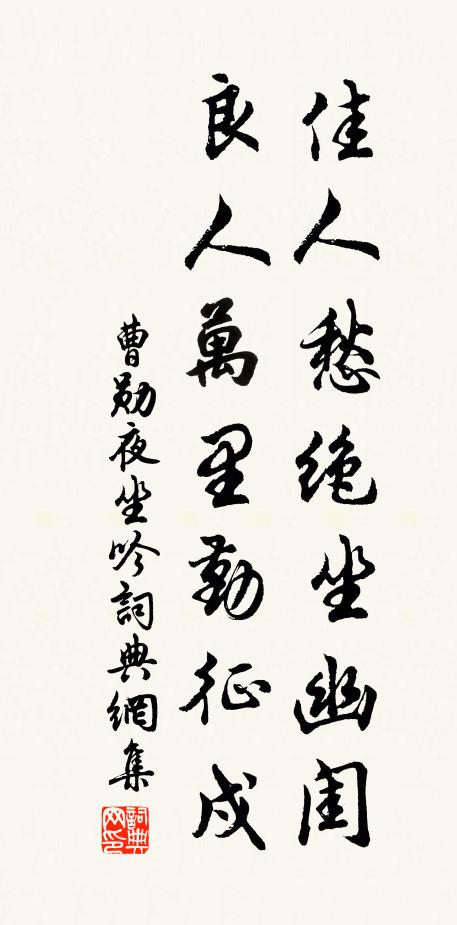 佳人愁绝坐幽闺
良人萬里勤征戍
曹勛夜坐吟詞典網集
詞典网印